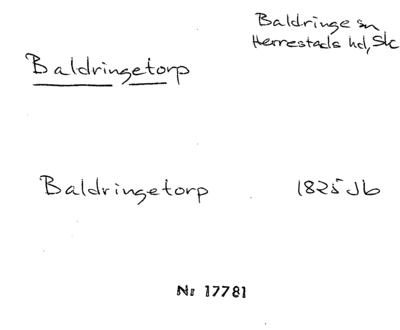 Baldringe sn
Herrestads hd, Sk
Baldringetorp
Baldringetorp 1825 Jb
Nr 17781